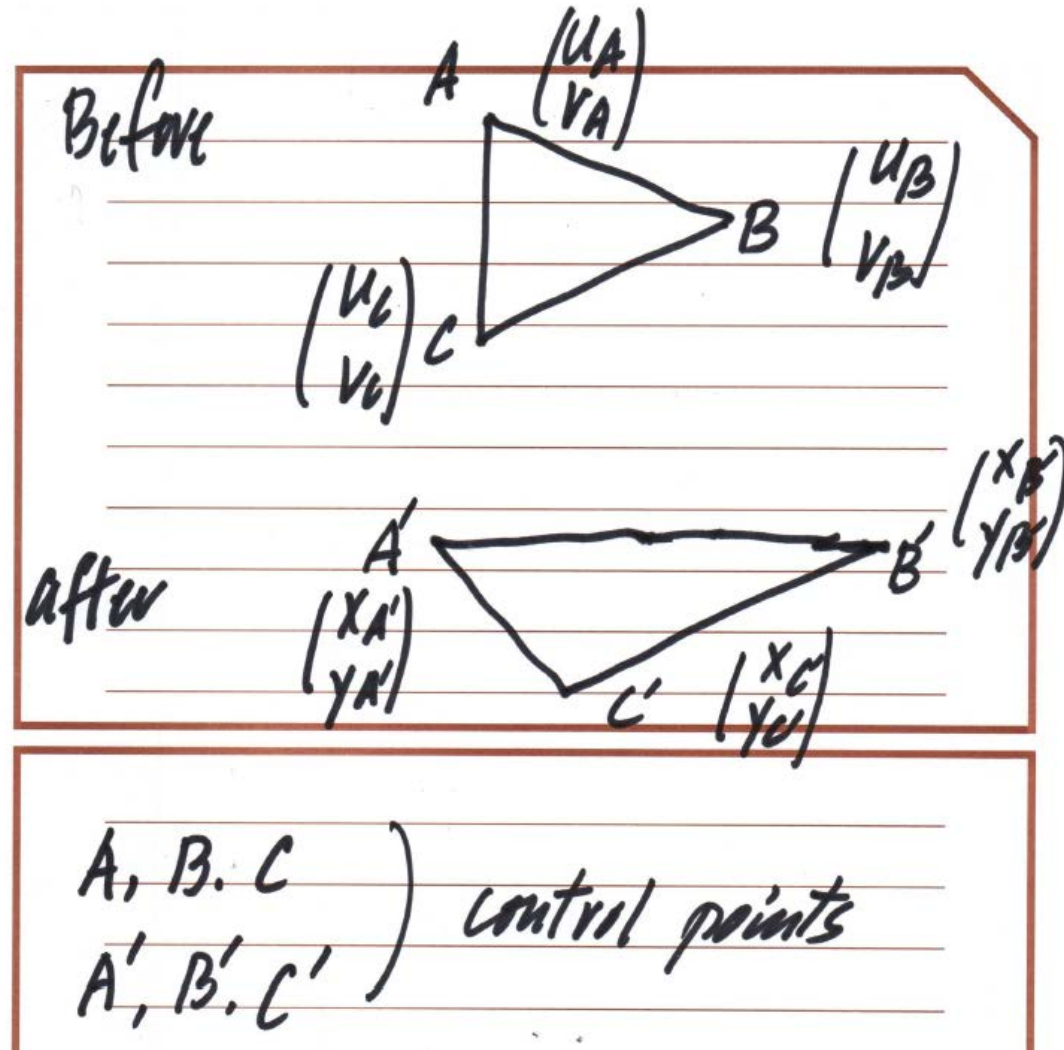 Before
A (u_A
v_A)
B (u_B
v_B)
(u_C
v_C) C
after
A'
(x_A'
y_A')
B' (x_B'
y_B')
C' (x_C'
y_C')
A, B. C
A', B'. C'
) control points